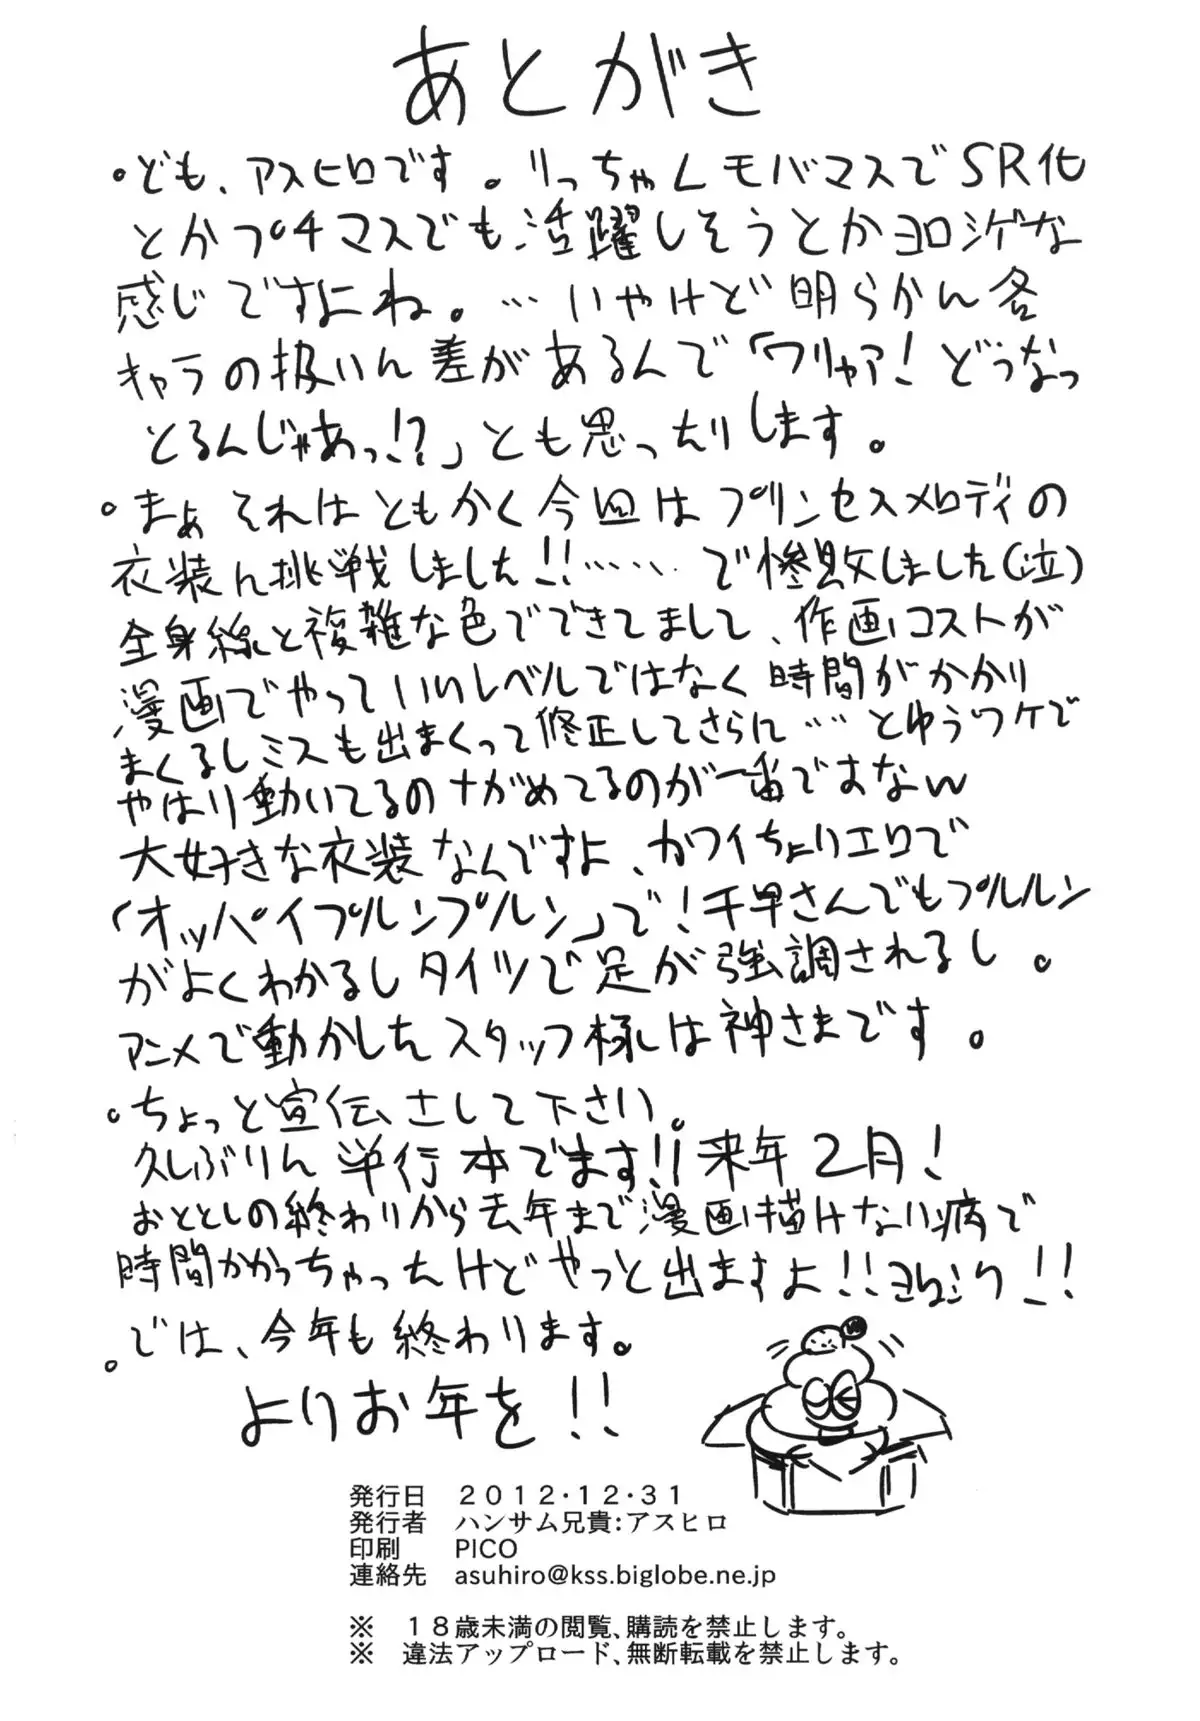 あとがき
・ども、アスヒロです。りっちゃんモバマスでSR化
とかプチマスでも活躍しそうとかヨロシゲな
感じですよね。…いやけど明らかん各
キャラの扱いん差があるんで「ワリャア!どうなっ
とるんじゃあっ!?」とも思ったりします。
・まぁそれはともかく今回はプリンセスメロディの
衣装ん挑戦しました!!……で惨敗しました(泣)
全身線と複雑な色でできてまして、作画コストが
漫画でやっていいレベルではなく時間がかかり
まくるしミスも出まくって修正してさらに……とゆうワケで
やはり動いてるのナがめてるのが一番ですなw
大好きな衣装なんですよ、カワイちょりエロで
「オッパイプルンプルン」で!千早さんでもプルルン
がよくわかるしタイツで足が強調されるし。
アニメで動かしたスタッフ様は神さまです。
・ちょっと宣伝さして下さい。
久しぶりん単行本でます!!来年2月!
おととしの終わりから去年まで漫画描けない病で
時間かかっちゃったけどやっと出ますよ!!ヨロシク!!
・では、今年も終わります。
よりお年を!!
発行日 2012・12・31
発行者 ハンサム兄貴:アスヒロ
印刷 PICO
連絡先 asuhiro@kss.biglobe.ne.jp
※ 18歳未満の閲覧、購読を禁止します。
※ 違法アップロード、無断転載を禁止します。